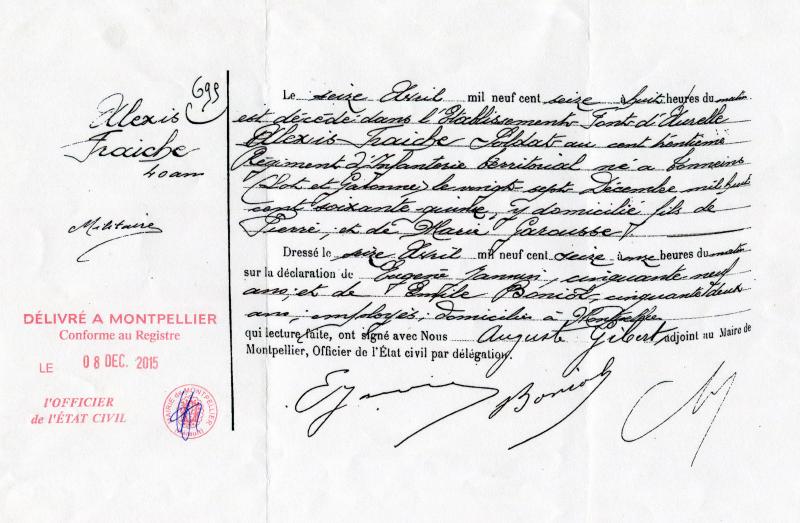 695
Alexis
Fraiche
40 ans
Militaire
DÉLIVRÉ A MONTPELLIER
Conforme au Registre
LE 08 DEC. 2015
l'OFFICIER
de l'ÉTAT CIVIL
MAIRIE de MONTPELLIER
Le seize Avril mil neuf cent seize à huit heures du matin
est décédé dans l'Etablissement Font-d'Aurelle
Alexis Fraiche Soldat au cent trentième
Régiment d'Infanterie territorial né à Tonneins
(Lot et Garonne) le vingt sept Décembre mil huit
cent soixante quinze, y domicilié fils de
Pierre, et de Marie Garousse
Dressé le seize Avril mil neuf cent seize à onze heures du matin
sur la déclaration de Eugène cinquante neuf
ans, et de Emile Boniol, cinquante deux
ans, employés, domiciliés à Montpellier
qui lecture faite, ont signé avec Nous Auguste Gibert adjoint au Maire de
Montpellier, Officier de l'État civil par délégation.
Boniol